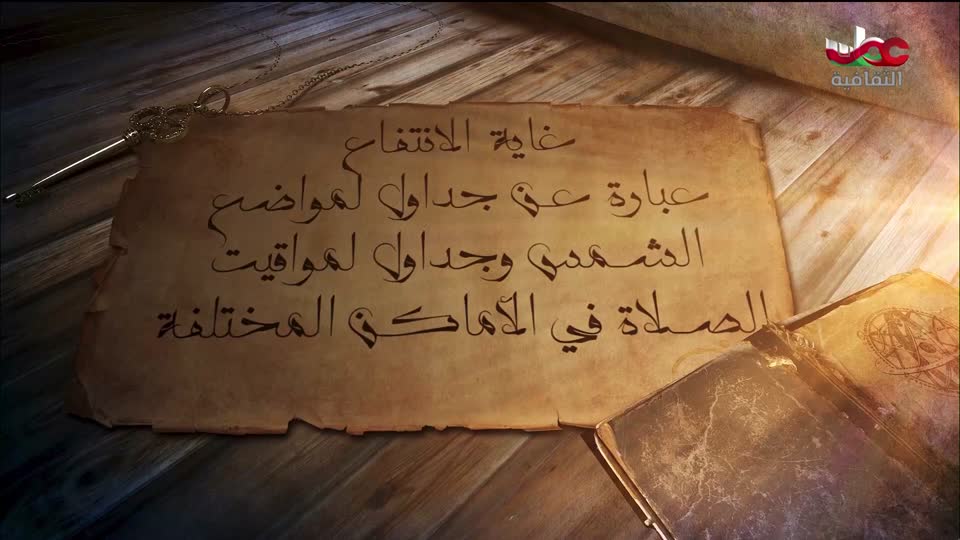 عمان
الثقافية
غاية الانتفاع
عبارة عن جداول لمواضع
الشمس وجداول لمواقيت
الصلاة في الأماكن المختلفة